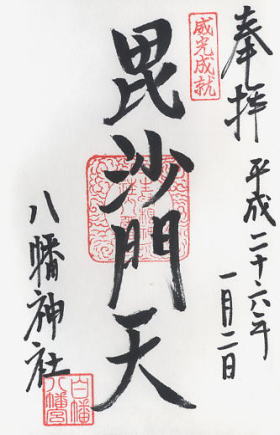 奉拝
平成二十六年
一月二日
威光成就
毘沙門天
八幡神社
白幡
八幡宮